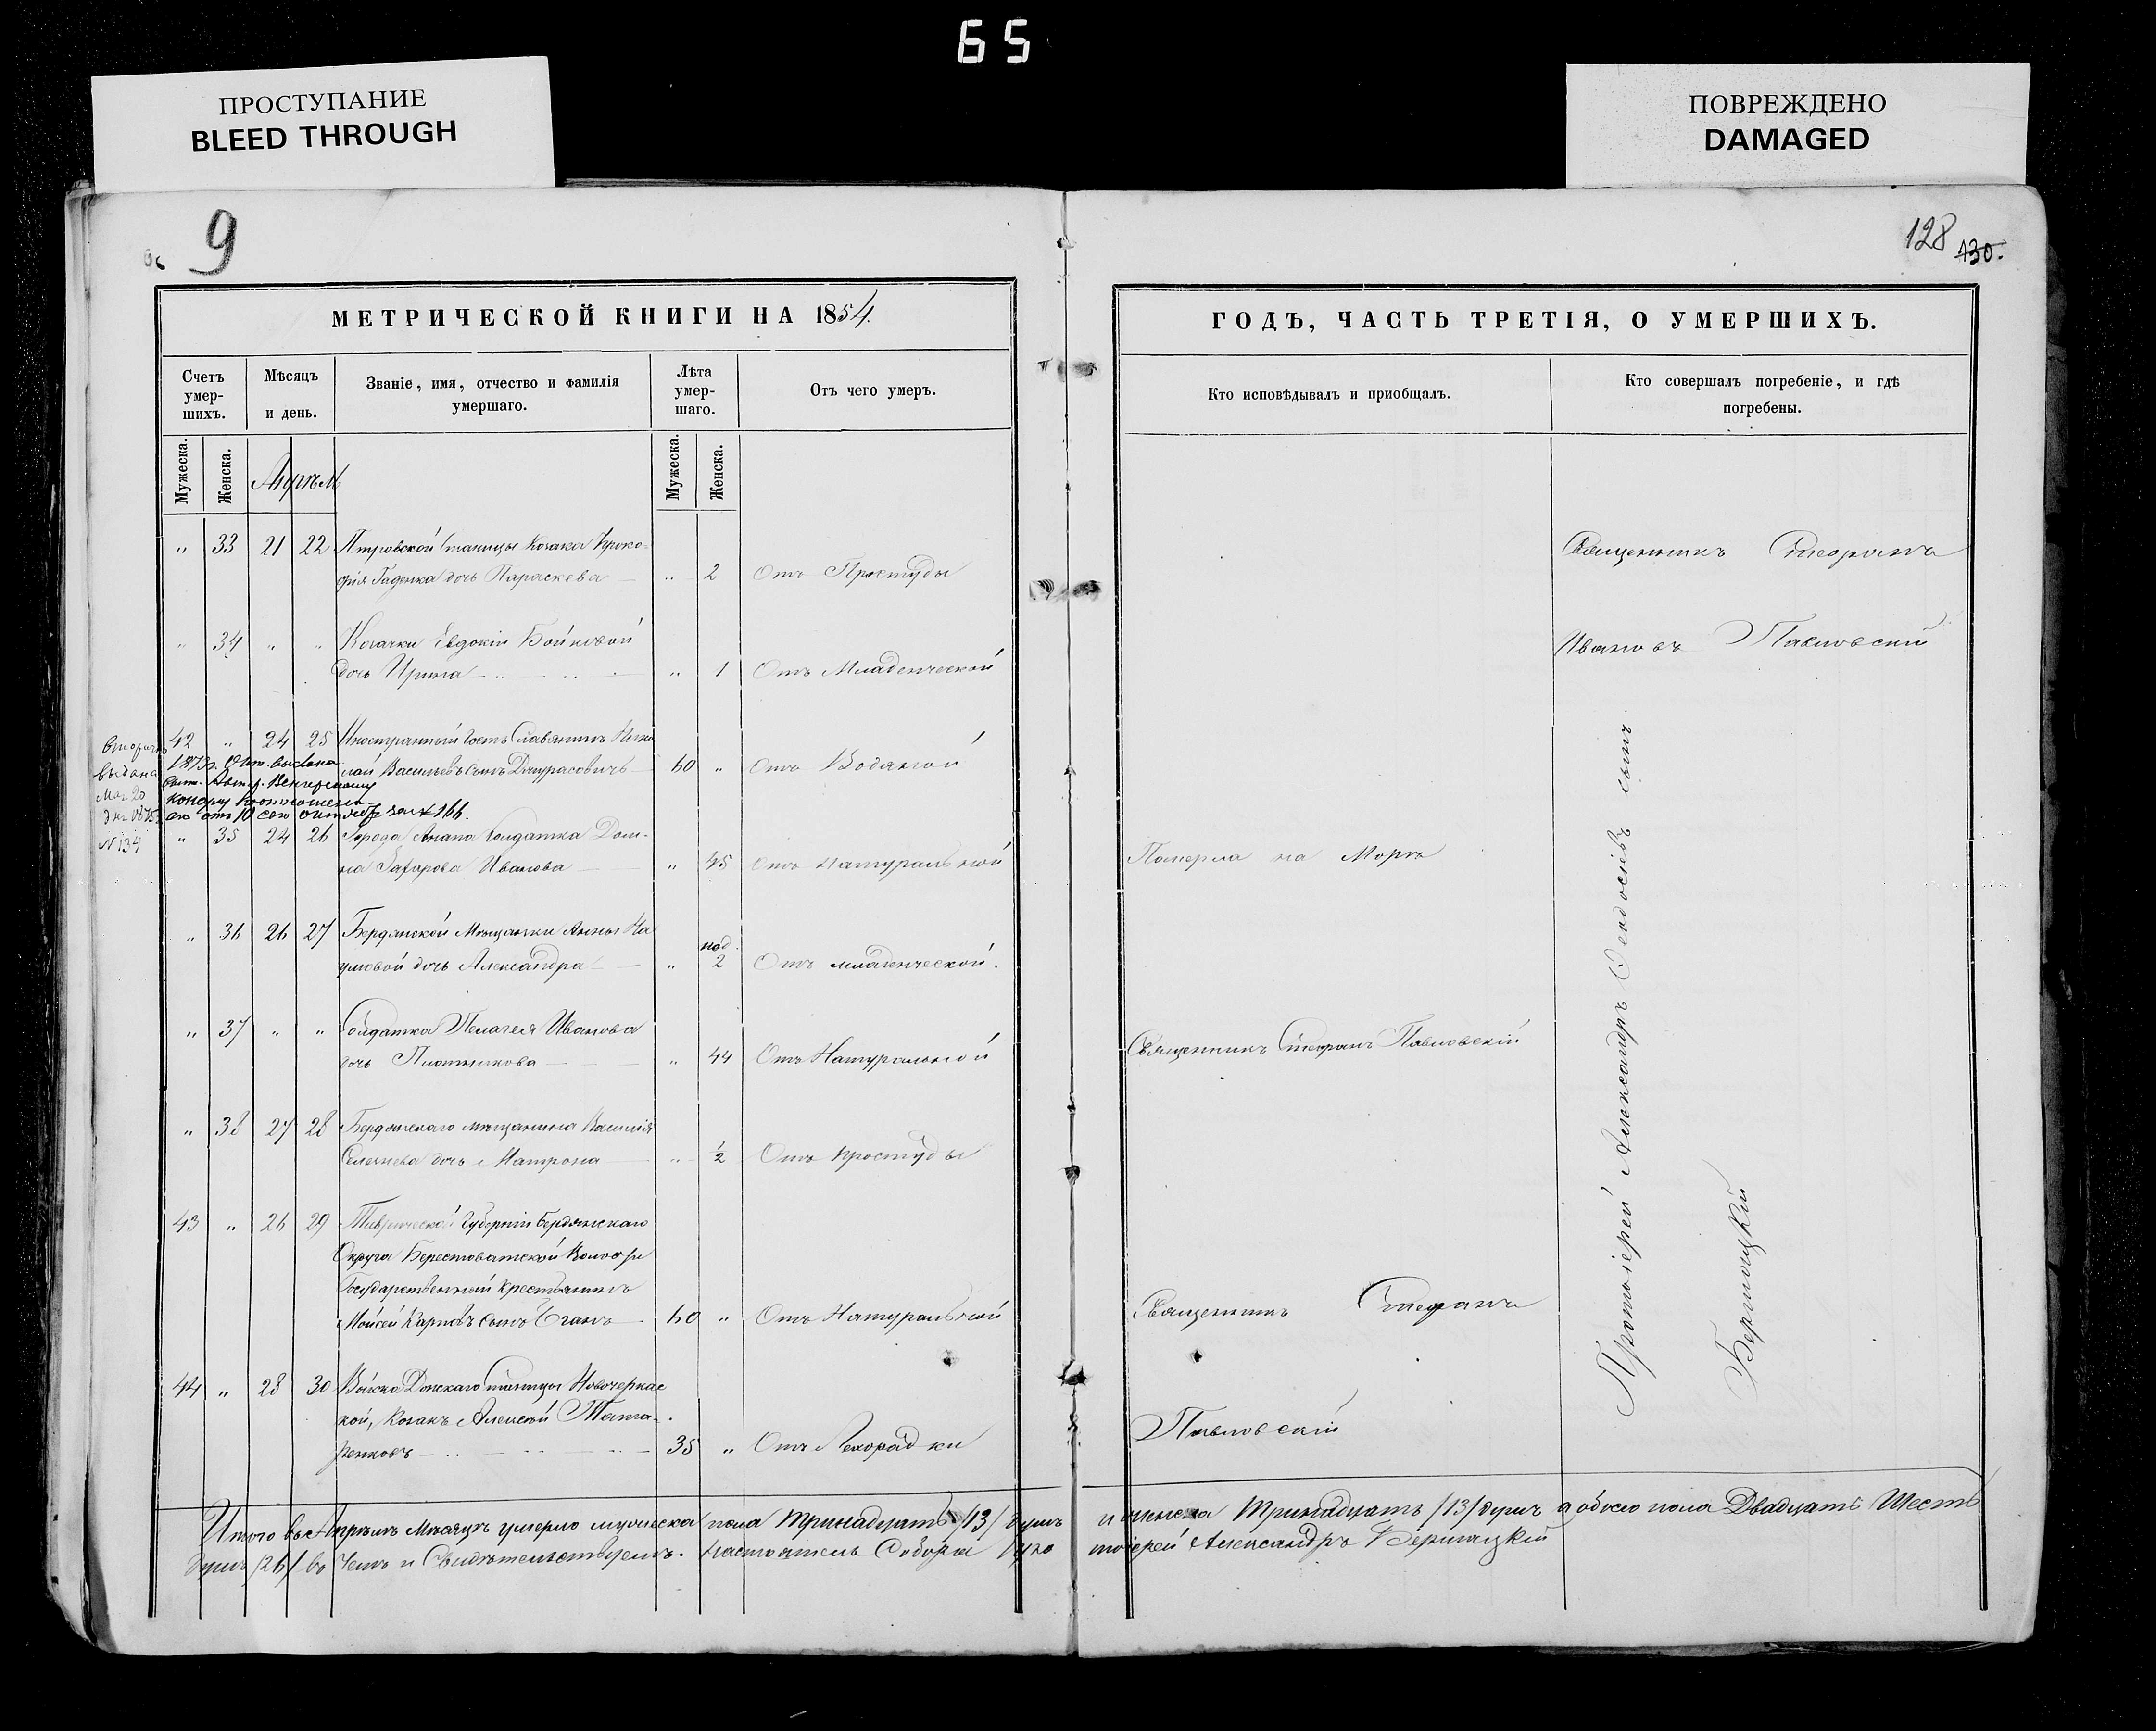 65
ПРОСТУПАНИЕ
BLEED THROUGH
ПОВРЕЖДЕНО
DAMAGED
9
128 130.
МЕТРИЧЕСКОЙ КНИГИ НА 1854.
Счетъ умер-шихъ.
Мѣсяцъ и день.
Званіе, имя, отчество и фамилія умершаго.
Лѣта умер-шаго.
Отъ чего умеръ.
Мужеска.
Женска.
Апрѣль
Мужеска.
Женска.
„ 33 21 22 Петровской Станицы Козака Проко-
фія Гаденка дочь Параскева „ 2 Отъ Простуды
„ 34 „ „ Козачки Евдокіи Бойковой
дочь Ирина „ 1 Отъ Младенческой
42 „ 24 25 Иностранный Гость Славянинъ Нико
лай Васильевъ сынъ 60 „ Отъ Водяной
Вторично
выдана
Мая 20
дня 1875
№ 134
1873 г. выдана
Австр. Венгерскому
отъ 10 сен № 166.
„ 35 24 26 Города Анапа Солдатка Дом-
на Захарова Иванова „ 45 Отъ Натуральной
„ 36 26 27 Бердянской Мѣщанки Анны На
умовой дочь Александра „ нед. 2 Отъ младенческой.
„ 37 „ „ Солдатка Пелагея Иванова
дочь Плотникова „ 44 Отъ Натуральной
„ 38 27 28 Бердянскаго мѣщанина Василія
дочь Матрона „ ½ Отъ простуды
43 „ 26 29 Таврической Губерніи Бердянскаго
Округа Берестоватской Волости
Государственный крестьянинъ
Мойсей Карповъ сынъ 60 „ Отъ Натуральной
44 „ 28 30 Войска Донскаго Станицы Новочеркас
кой, Козакъ Алексѣй Тата-
ренковъ 35 „ Отъ Лехорадки
ГОДЪ, ЧАСТЬ ТРЕТІЯ, О УМЕРШИХЪ.
Кто исповѣдывалъ и приобщалъ.
Кто совершалъ погребеніе, и гдѣ погребены.
Священникъ Стефанъ
Ивановъ Павловскій
Померла на Морѣ
Священникъ Стефанъ Павловскій
Священникъ Стефанъ
Павловскій
Протоіерей Александръ Феодосіевъ сынъ
Бершацкій
Итого въ Апрѣлѣ Мѣсяцѣ умерло мужеска пола Тринадцать /13/ душъ и женска Тринадцать /13/ душъ а обоего пола Двадцать Шесть
душъ /26/ во чемъ и Свидѣтельствуемъ. Настоятель Собора Протоіерей Александръ Бершацкій